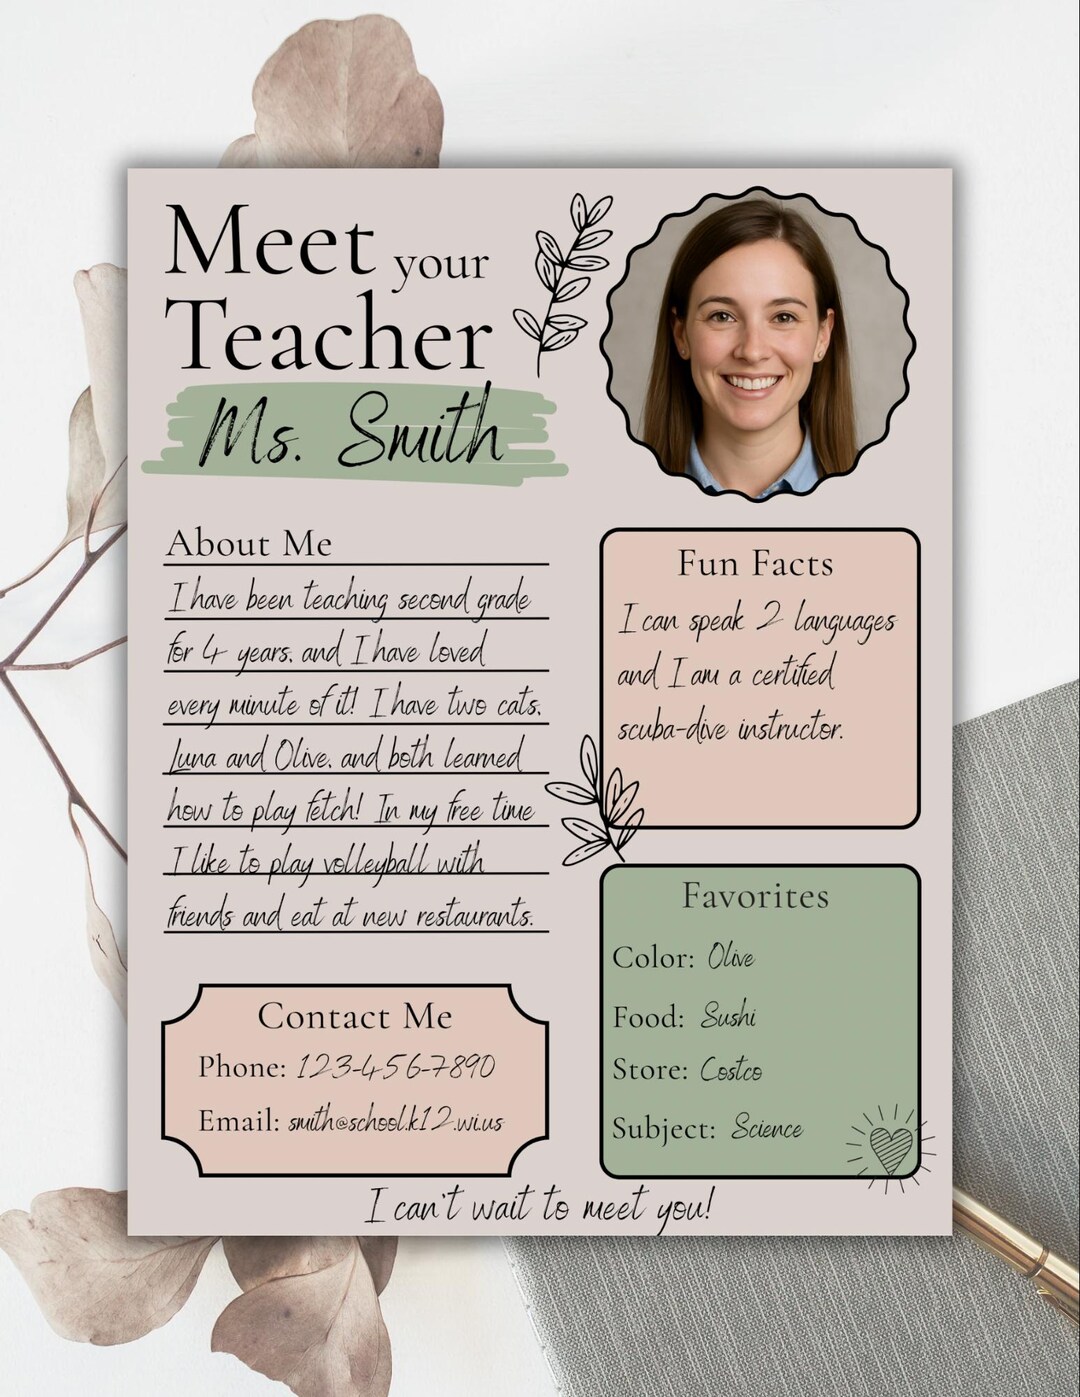 Meet your
Teacher
Ms. Smith
About Me
I have been teaching second grade
for 4 years, and I have loved
every minute of it! I have two cats,
Luna and Olive, and both learned
how to play fetch! In my free time
I like to play volleyball with
friends and eat at new restaurants.
Contact Me
Phone: 123-456-7890
Email: smith@school.k12.wi.us
Fun Facts
I can speak 2 languages
and I am a certified
scuba-dive instructor.
Favorites
Color: Olive
Food: Sushi
Store: Costco
Subject: Science
I can't wait to meet you!